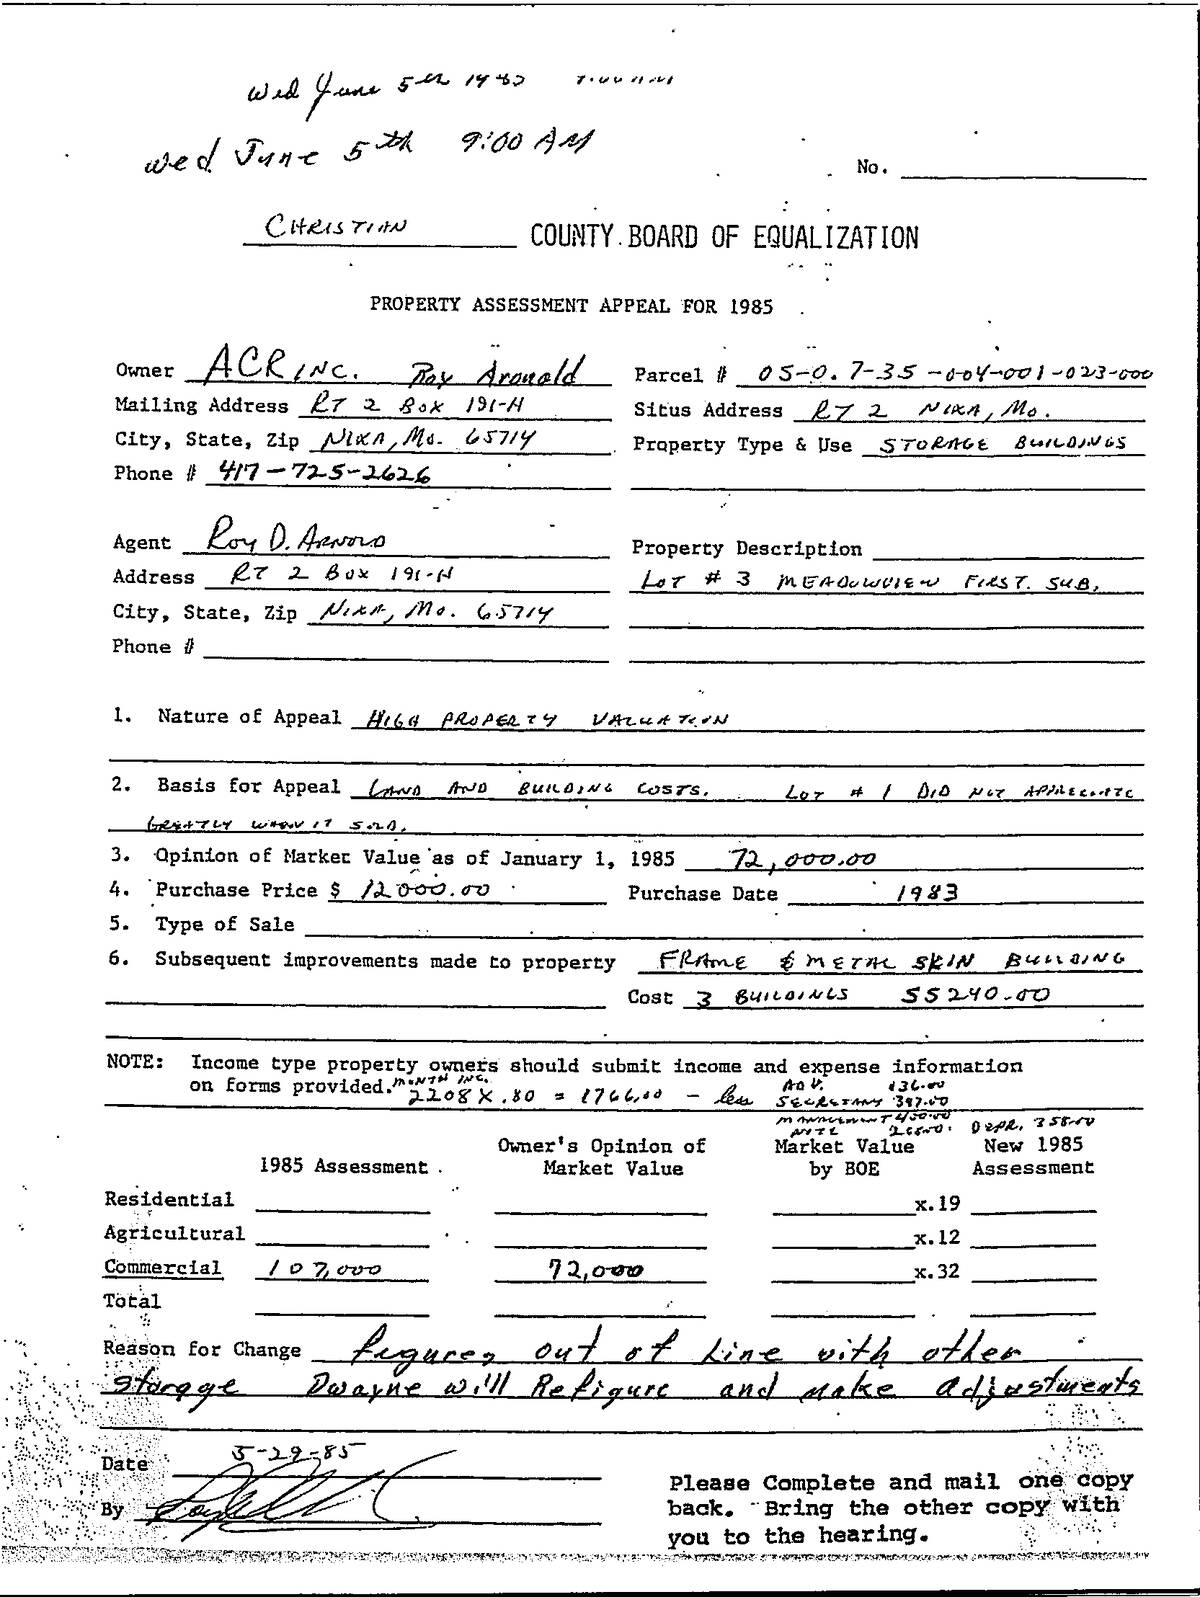 Wed June 5th
Wed June 5th 9:00 AM
No.
CHRISTIAN COUNTY BOARD OF EQUALIZATION
PROPERTY ASSESSMENT APPEAL FOR 1985
Owner ACR INC. Roy Aronold Parcel # 05-0.7-35-004-001-023-000
Mailing Address RT 2 Box 191-H Situs Address RT 2 NIXA, Mo.
City, State, Zip NIXA, Mo. 65714 Property Type & Use STORAGE BUILDINGS
Phone # 417-725-2626
Agent Roy D. ARNOLD Property Description
Address RT 2 Box 191-H LOT # 3 MEADOWVIEW FIRST. SUB.
City, State, Zip NIXA, Mo. 65714
Phone #
1. Nature of Appeal HIGH PROPERTY VALUATION
2. Basis for Appeal LAND AND BUILDING COSTS. LOT # 1 DID NOT APPRECIATE
GREATLY WHEN IT SOLD.
3. Opinion of Market Value as of January 1, 1985 72,000.00
4. Purchase Price $ 12000.00 Purchase Date 1983
5. Type of Sale
6. Subsequent improvements made to property FRAME & METAL SKIN BUILDING
Cost 3 BUILDINGS 55240.00
NOTE: Income type property owners should submit income and expense information
on forms provided. MONTH INC. 2208 X .80 = 1766.00 - less ADV. 136.00
SECRETARY 387.00
MANAGEMENT 450.00
NOTE DEPR. 358.00
1985 Assessment Owner's Opinion of Market Value Market Value by BOE New 1985 Assessment
Residential x.19
Agricultural x.12
Commercial 107,000 72,000 x.32
Total
Reason for Change figures out of Line with other
storage Dwayne will Refigure and make Adjustments
Date 5-29-85
By
Please Complete and mail one copy
back. Bring the other copy with
you to the hearing.